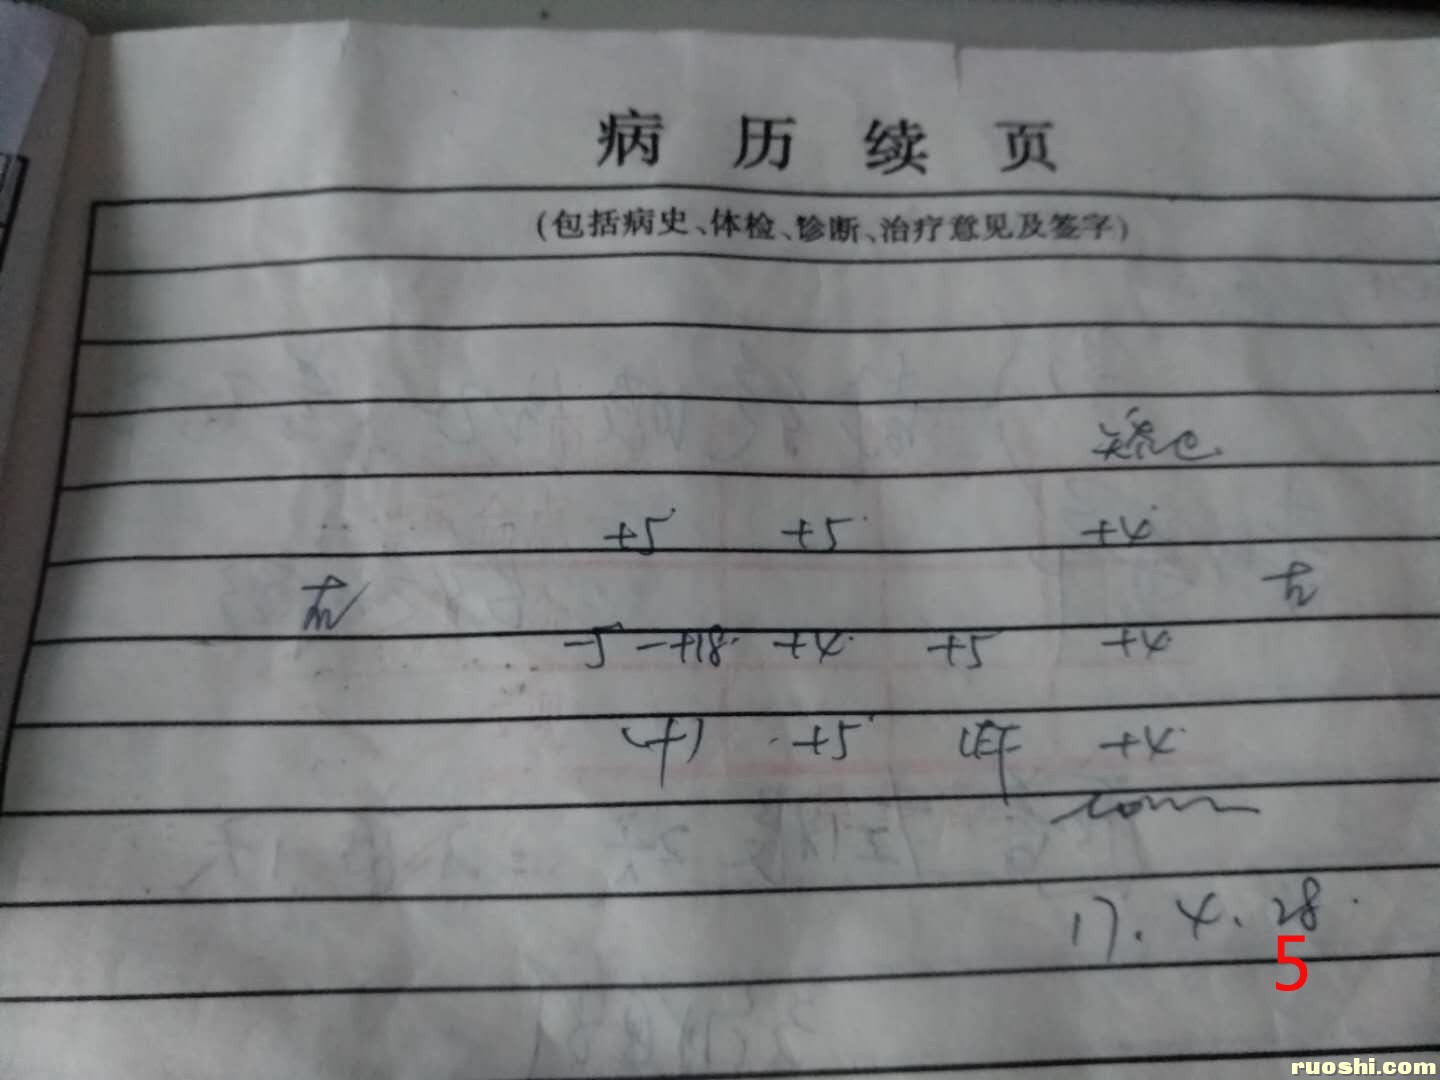 病历续页
(包括病史、体检、诊断、治疗意见及签字)
+5 +5 +4
右 左
-5 -+18 +4 +5 +4
+5 +4
17.4.28.
5
ruoshi.com